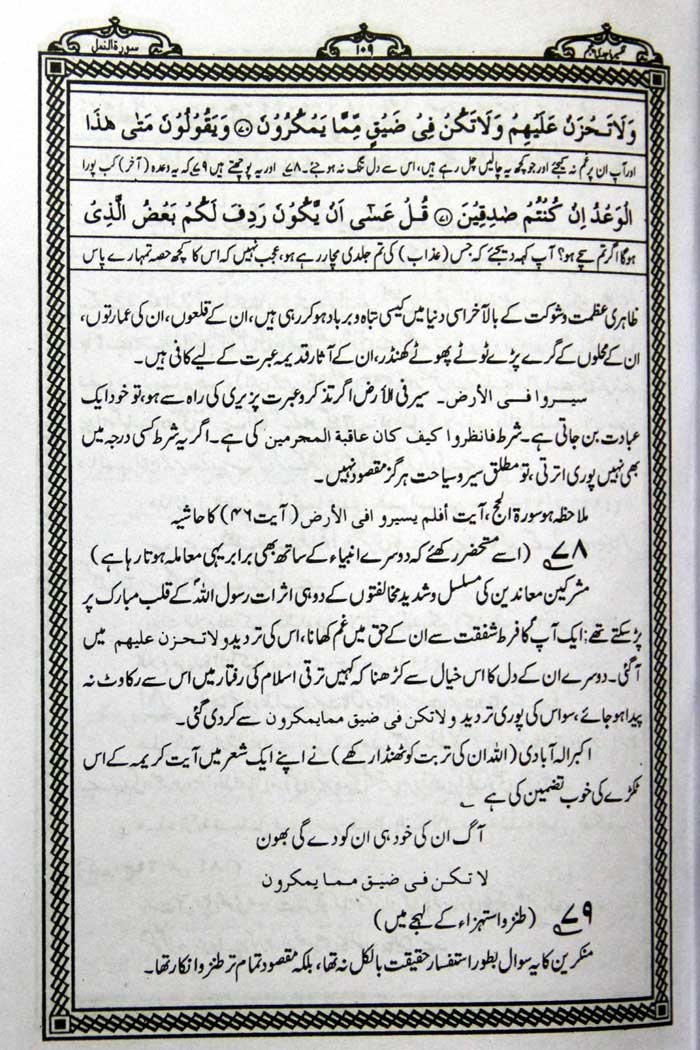 سورة النمل
۱۰۹
وَلَا تَحْزَنْ عَلَيْهِمْ وَلَا تَكُنْ فِىْ ضَيْقٍ مِّمَّا يَمْكُرُوْنَ ﴿۷۰﴾ وَيَقُوْلُوْنَ مَتٰى هٰذَا
اور آپ ان پر غم نہ کیجئے اور جو کچھ یہ چالیں چل رہے ہیں، اس سے دل تنگ نہ ہوجئے۔ ۷۸ اور یہ پوچھتے ہیں ۷۹ کہ یہ وعدہ (آخر) کب پورا
الْوَعْدُ اِنْ كُنْتُمْ صٰدِقِيْنَ ﴿۷۱﴾ قُلْ عَسٰٓى اَنْ يَّكُوْنَ رَدِفَ لَكُمْ بَعْضُ الَّذِىْ
ہوگا اگر تم سچے ہو؟ آپ کہہ دیجئے کہ جس (عذاب) کی تم جلدی مچا رہے ہو، عجب نہیں کہ اس کا کچھ حصہ تمہارے پاس
ظاہری عظمت و شوکت کے بالآخر اسی دنیا میں کیسی تباہ و برباد ہوکر رہی ہیں، ان کے قلعوں، ان کی عمارتوں،
ان کے محلوں کے گرے پڑے ٹوٹے پھوٹے کھنڈر، ان کے آثار قدیمہ عبرت کے لیے کافی ہیں۔
سیروا فی الأرض۔ سیر فی الأرض اگر تذکر و عبرت پزیری کی راہ سے ہو، تو خود ایک
عبادت بن جاتی ہے۔ شرط فانظروا كيف كان عاقبة المجرمين کی ہے۔ اگر یہ شرط کسی درجہ میں
بھی نہیں پوری اترتی، تو مطلق سیر و سیاحت ہرگز مقصود نہیں۔
ملاحظہ ہو سورۃ الحج، آیت أفلم يسيروا فى الأرض (آیت ۴۶) کا حاشیہ
۷۸ (اسے مستحضر رکھئے کہ دوسرے انبیاء کے ساتھ بھی برابر یہی معاملہ ہوتا رہا ہے)
مشرکین معاندین کی مسلسل و شدید مخالفتوں کے دو ہی اثرات رسول اللہؐ کے قلب مبارک پر
پڑسکتے تھے: ایک آپؐ کا فرط شفقت سے ان کے حق میں غم کھانا، اس کی تردید و لا تحزن عليهم میں
آگئی۔ دوسرے ان کے دل کا اس خیال سے کڑھنا کہ کہیں ترقی اسلام کی رفتار میں اس سے رکاوٹ نہ
پیدا ہوجائے، سو اس کی پوری تردید ولا تكن فى ضيق مما يمكرون سے کردی گئی۔
اکبر الہ آبادی (اللہ ان کی تربت کو ٹھنڈا رکھے) نے اپنے ایک شعر میں آیت کریمہ کے اس
ٹکڑے کی خوب تضمین کی ہے
آگ ان کی خود ہی ان کو دے گی بھون
لا تكن فى ضيق مما يمكرون
۷۹ (طنز و استہزاء کے لہجے میں)
منکرین کا یہ سوال بطور استفسار حقیقت بالکل نہ تھا، بلکہ مقصود تمام تر طنز و انکار تھا۔